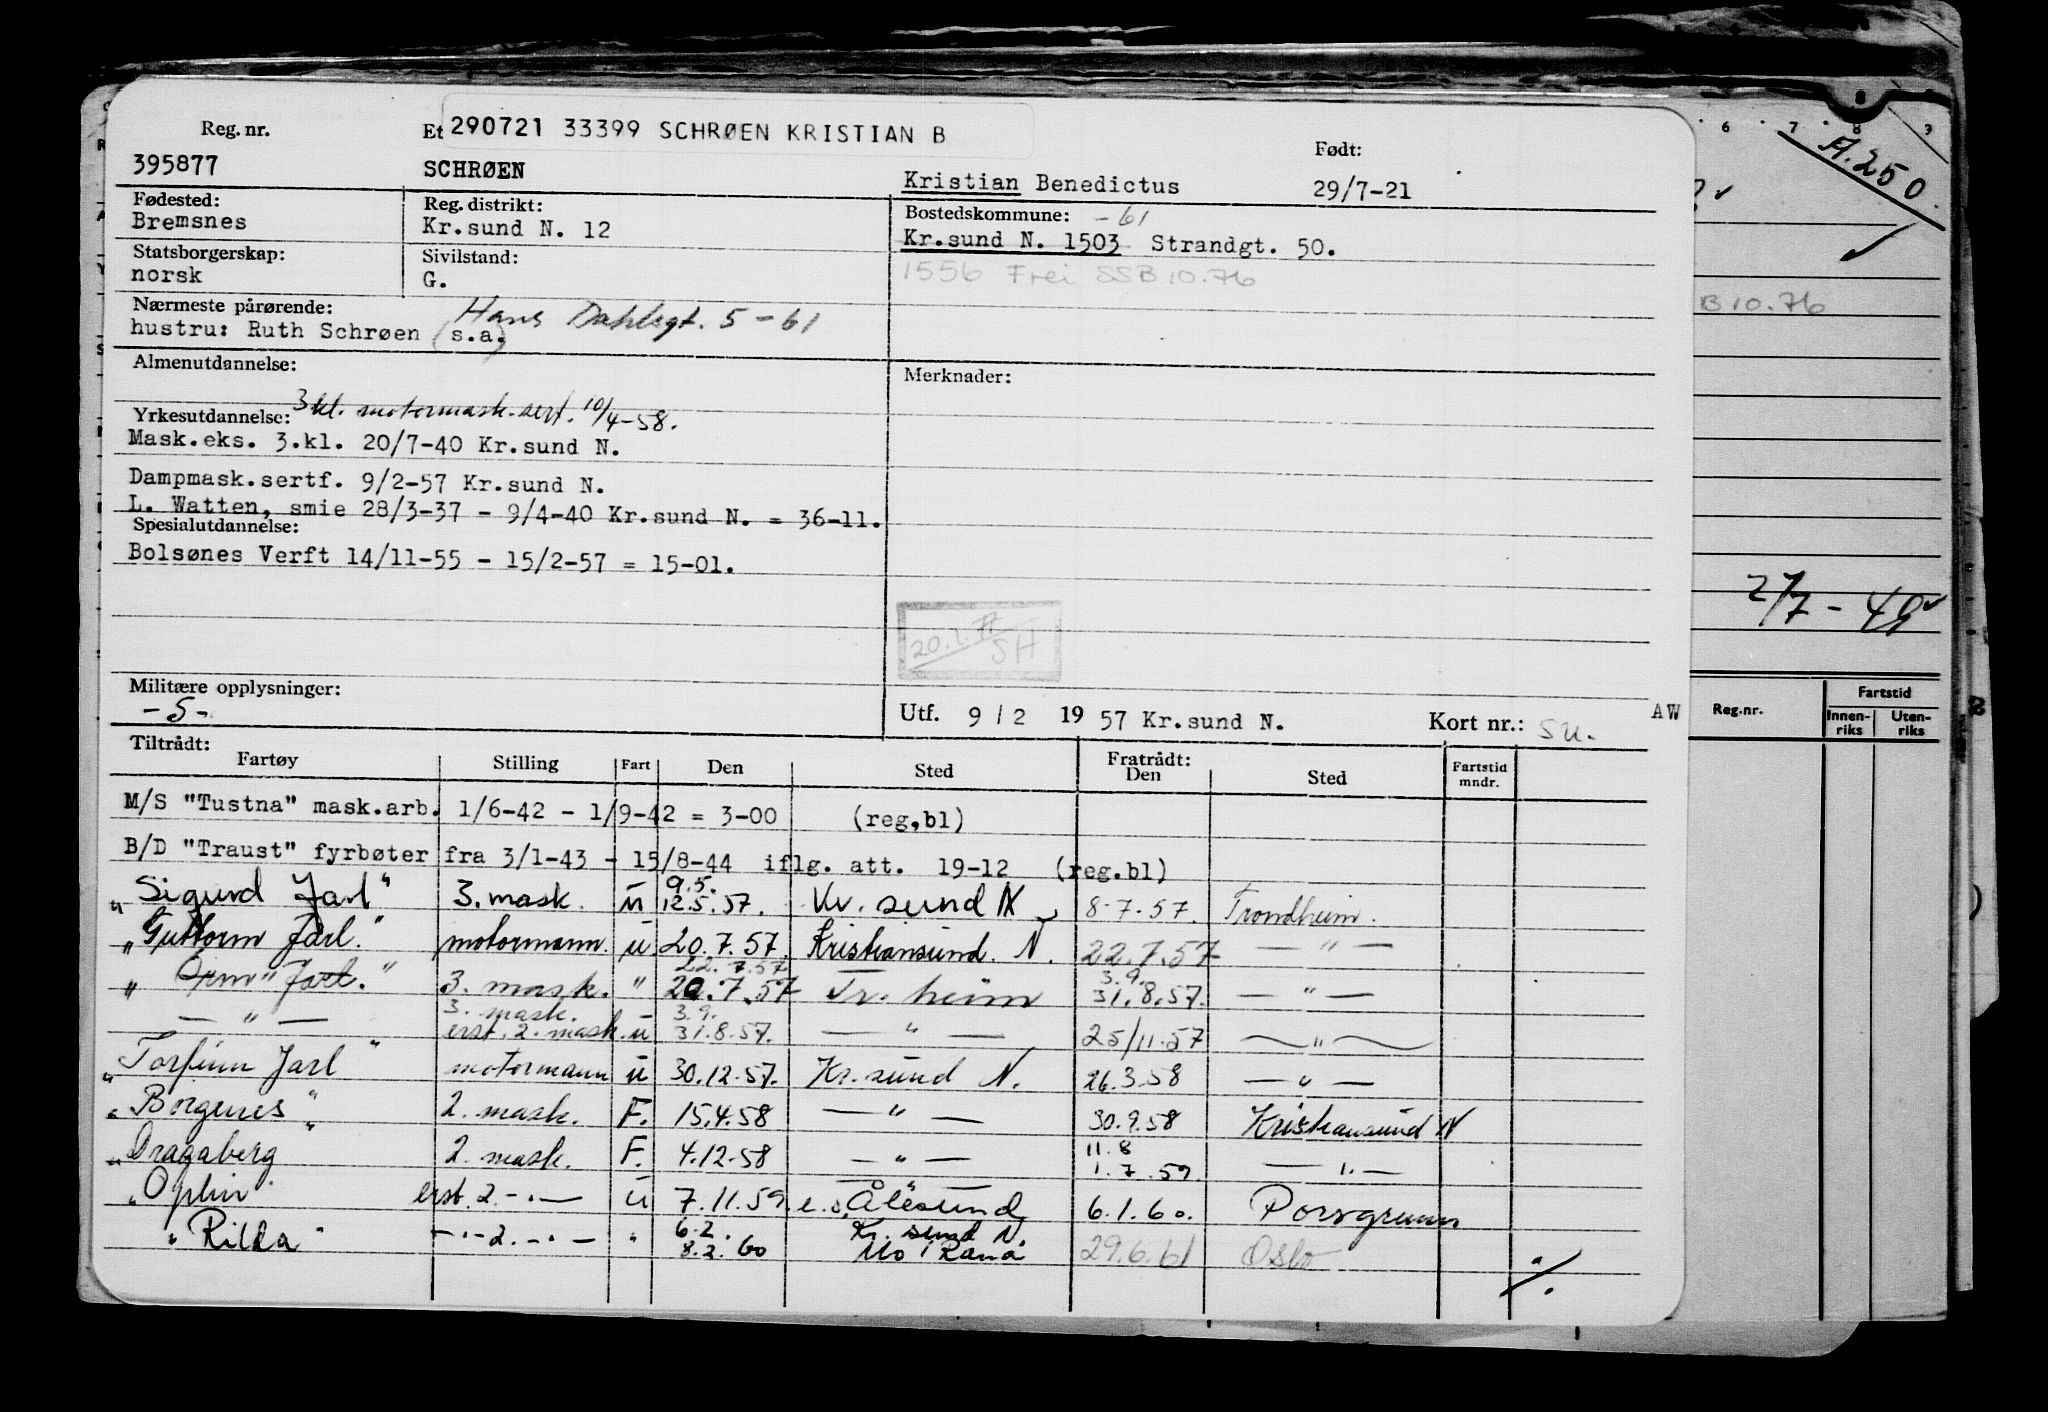 Reg. nr.
Et 290721 33399 SCHRØEN KRISTIAN B
Født:
395877
SCHRØEN
Kristian Benedictus
29/7-21
Fødested:
Bremsnes
Reg. distrikt:
Kr.sund N. 12
Bostedskommune: -61
Kr.sund N. 1503 Strandgt. 50.
Statsborgerskap:
norsk
Sivilstand:
G.
1556 Frei SSB 10.76
Nærmeste pårørende:
hustru: Ruth Schrøen (s.a.)
Hans Dahlsgt. 5 - 61
Almenutdannelse:
Merknader:
3 kl. motormask.sert. 10/4-58.
Yrkesutdannelse:
Mask.eks. 3.kl. 20/7-40 Kr.sund N.
Dampmask.sertf. 9/2-57 Kr.sund N.
L. Watten, smie 28/3-37 - 9/4-40 Kr.sund N. = 36-11.
Spesialutdannelse:
Bolsønes Verft 14/11-55 - 15/2-57 = 15-01.
20.1.77
SH
Militære opplysninger:
-5-
Utf. 9/2 19 57 Kr.sund N.
Kort nr.: su.
AW
Tiltrådt:
Fratrådt:
Fartøy Stilling Fart Den Sted Den Sted Fartstid mndr.
M/S "Tustna" mask.arb. 1/6-42 - 1/9-42 = 3-00 (reg,bl)
B/D "Traust" fyrbøter fra 3/1-43 - 15/8-44 iflg. att. 19-12 (reg.bl)
9.5.
"Sigurd Jarl" 3. mask. u 12.5.57. Kr. sund N 8-7-57. Trondheim.
"Guttorm Jarl." motormann. u. 20.7.57. Kristiansund. N. 22.7.57 — " —
22.7.57 3.9.
" Orm Jarl." 3. mask. " 20.7.57 Tr. heim 31.8.57. — " —
3. mask. 3.9.
— " — erst. 2. mask. u 31.8.57. — " — 25/11.57 — " —
"Torfinn Jarl" motormann u 30.12.57. Kr. sund N. 26.3.58 — " —
"Borgenes" 2. mask. F. 15.4.58 — " — 30.9.58 Kristiansund N
11.8
"Dragaberg 2. mask. F. 4.12.58 — " — 1.7.59. — " —
"Oplin" erst. 2. - " — u 7.11.59. Ålesund 6.1.60. Porsgrunn
6.2. Kr. sund N.
"Rilda" - " - 2. - " - " 8.2.60 Mo i Rana 29.6.61 Oslo
%
6 7 8 9
A.250.
B 10.76
2/7 - 49
Reg.nr.
Fartstid
Innenriks
Utenriks